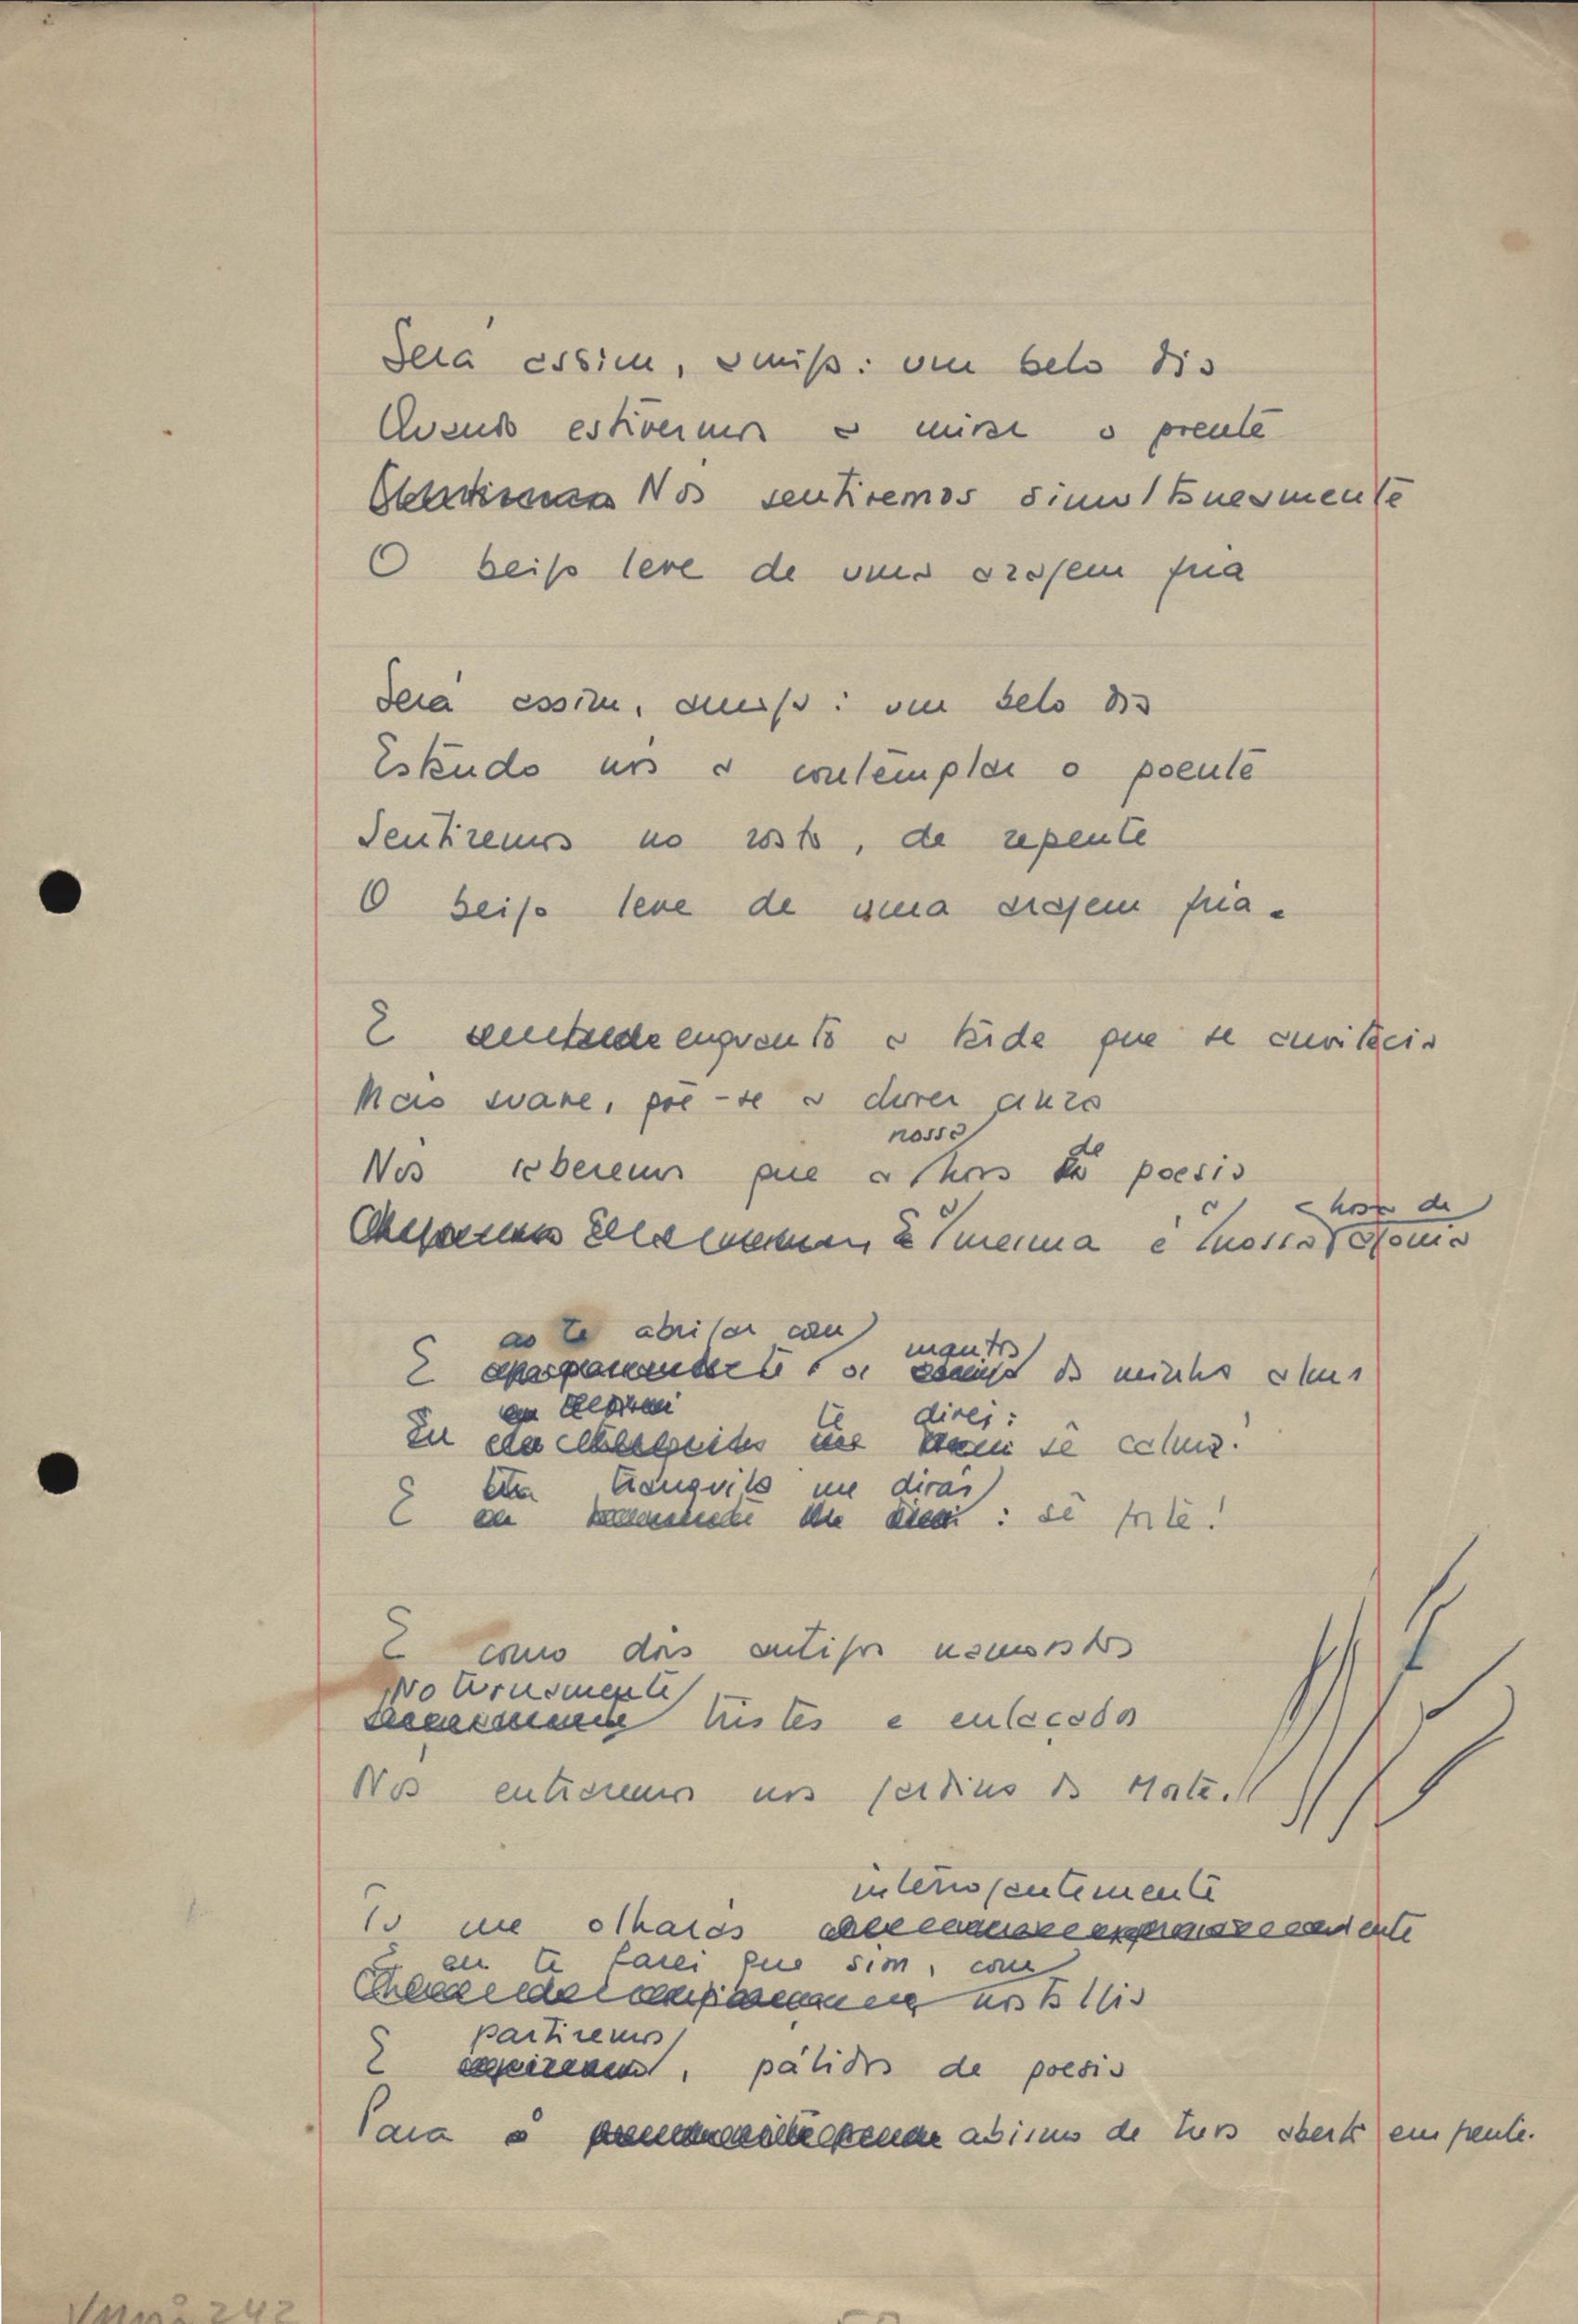 Será assim, amigo: um belo dia
Quando estivermos a mirar o poente
Nós sentiremos simultaneamente
O beijo leve de uma aragem fria
Será assim, amigo: um belo dia
Estando nós a contemplar o poente
Sentiremos no rosto, de repente
O beijo leve de uma aragem fria.
E enquanto a tarde que se
Mais suave, põe-se a chover cinza
nossa
Nós saberemos que a hora da de poesia
a a hora de
E a mesma é a nossa agonia
ao te abrigar com manto
E da minha alma
te direi:
Eu sê calma!
tranquila me dirás
E : sê forte!
E como dois antigos namorados
Noturnamente
tristes e enlaçados
Nós entraremos nos jardins da Morte.
interrogantemente
Tu me olharás
E eu te farei que sim, com
nostalgia
partiremos
E , pálidos de poesia
Para o abismo de luz aberto em frente.
242